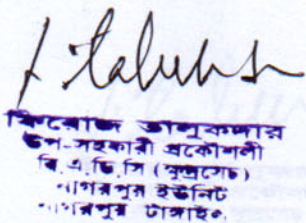 ফিরোজ তালুকদার
উপ-সহকারী প্রকৌশলী
বি.এ.ডি.সি (ক্ষুদ্রসেচ)
নাগরপুর ইউনিট
নাগরপুর টাঙ্গাইল